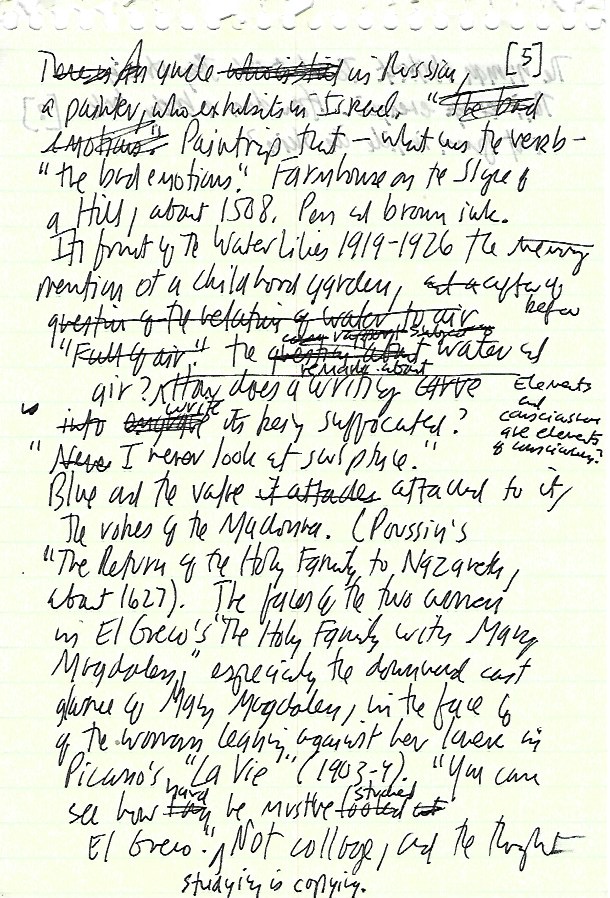 [5]
An uncle who is in Russian,
a painter, who exhibits in Israel. "the bad
emotions." Paintings that — what was the verb —
"the bad emotions." Farmhouse on the Slope of
a Hill, about 1508. Pen and brown ink.
In front of the Water Lilies 1919-1926 the
mention of a childhood garden,
before
question of the relation of water to air
"Full of air." the question about water and
remark about
air? How does a writing
Elements
and
consciousness
are elements
of consciousness?
write
into its being suffocated?
"Never I never look at sculpture."
Blue and the value it attaches attached to it,
The robes of the Madonna. (Poussin's
"The Return of the Holy Family to Nazareth,
about 1627). The faces of the two women
in El Greco's "The Holy Family with Mary
Magdalen," especially the downward cast
glance of Mary Magdalen, in the face of
of the woman leaning against her lover in
Picasso's "La Vie" (1903-4). "You can
hard studied
see how he must've looked at
El Greco." Not collage, and the thought
studying is copying.